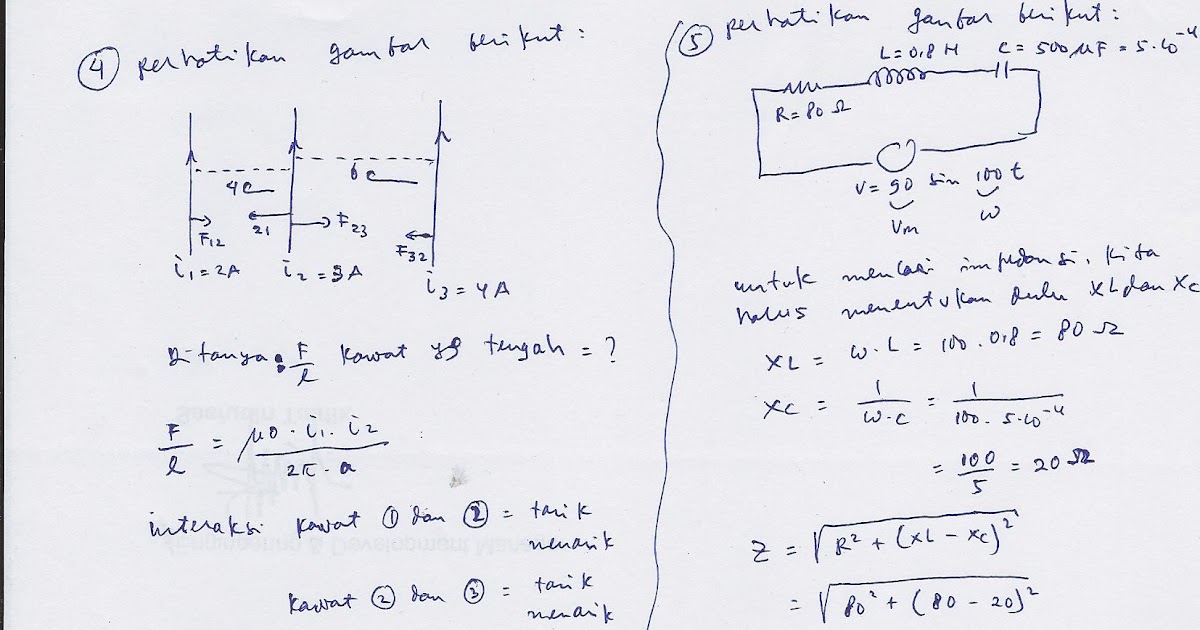 ④ perhatikan gambar berikut :
4c
6c
F12
21
F23
F32
i1 = 2A
i2 = 3A
i3 = 4A
Ditanya : F/l kawat yg tengah = ?
F/l = μ0 · i1 · i2 / 2π · a
interaksi kawat ① dan ② = tarik
menarik
kawat ② dan ③ = tarik
menarik
⑤ perhatikan gambar berikut :
L = 0,8 H C = 500 μF = 5·10⁻⁴
R = 80 Ω
V = 90 sin 100 t
Vm
ω
untuk mencari impedansi, kita
harus menentukan dulu XL dan XC
XL = ω · L = 100 · 0,8 = 80 Ω
XC = 1/ω·C = 1/100 · 5·10⁻⁴
= 100/5 = 20 Ω
Z = √R² + (XL – XC)²
= √80² + (80 – 20)²